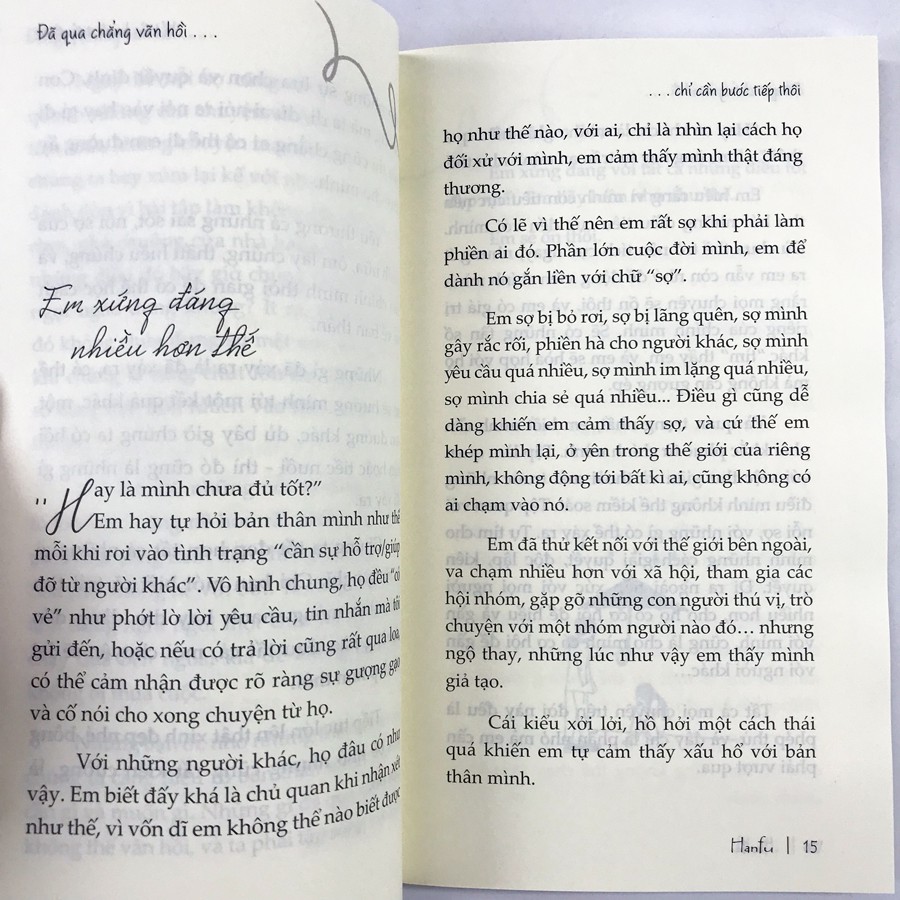 Đã qua chẳng vãn hồi . . .
Em xứng đáng
nhiều hơn thế
"Hay là mình chưa đủ tốt?"
Em hay tự hỏi bản thân mình như thế
mỗi khi rơi vào tình trạng "cần sự hỗ trợ/giúp
đỡ từ người khác". Vô hình chung, họ đều "có
vẻ" như phớt lờ lời yêu cầu, tin nhắn mà tôi
gửi đến, hoặc nếu có trả lời cũng rất qua loa,
có thể cảm nhận được rõ ràng sự gượng gạo
và cố nói cho xong chuyện từ họ.
Với những người khác, họ đâu có như
vậy. Em biết đấy khá là chủ quan khi nhận xét
như thế, vì vốn dĩ em không thể nào biết được
. . . chỉ cần bước tiếp thôi
họ như thế nào, với ai, chỉ là nhìn lại cách họ
đối xử với mình, em cảm thấy mình thật đáng
thương.
Có lẽ vì thế nên em rất sợ khi phải làm
phiền ai đó. Phần lớn cuộc đời mình, em để
dành nó gắn liền với chữ "sợ".
Em sợ bị bỏ rơi, sợ bị lãng quên, sợ mình
gây rắc rối, phiền hà cho người khác, sợ mình
yêu cầu quá nhiều, sợ mình im lặng quá nhiều,
sợ mình chia sẻ quá nhiều... Điều gì cũng dễ
dàng khiến em cảm thấy sợ, và cứ thế em
khép mình lại, ở yên trong thế giới của riêng
mình, không động tới bất kì ai, cũng không có
ai chạm vào nó.
Em đã thử kết nối với thế giới bên ngoài,
va chạm nhiều hơn với xã hội, tham gia các
hội nhóm, gặp gỡ những con người thú vị, trò
chuyện với một nhóm người nào đó... nhưng
ngộ thay, những lúc như vậy em thấy mình
giả tạo.
Cái kiểu xởi lởi, hồ hởi một cách thái
quá khiến em tự cảm thấy xấu hổ với bản
thân mình.
Hanfu | 15